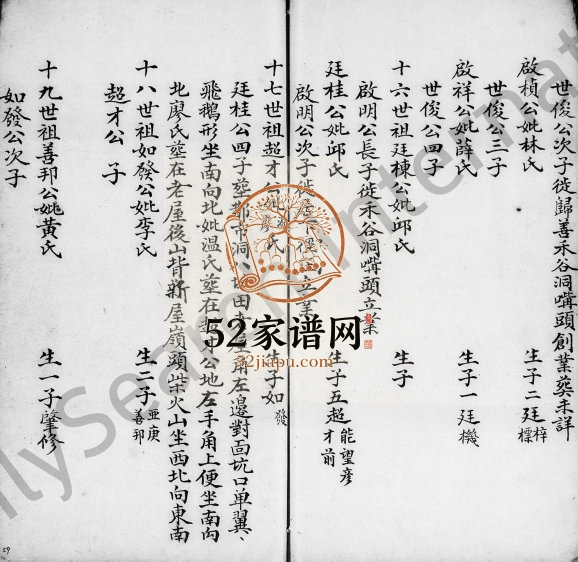 世俊公次子徙歸善禾谷洞嘴頭創業葵未詳
啟楨公妣林氏 生子二廷梓標
世俊公三子
啟祥公妣薛氏 生子一廷機
世俊公四子
十六世祖廷棟公妣邱氏 生子
啟明公長子徙禾谷洞嘴頭立業
廷桂公妣邱氏 生子五超能望彥才前
啟明公次子徙 立業
十七世祖超才公妣 氏 生子如發
廷桂公四子塟 洞 田 角左邊對面坑口单翼、
飛鵝形坐南向北妣温氏塟在 公地左手角上便坐南向
北廖氏塟在老屋後山背新屋嶺頭柴火山坐西北向東南
十八世祖如發公妣李氏 生二子亜庚善邦
超才公 子
十九世祖善邦公妣黄氏 生一子肇修
如發公次子
52家谱网
52jiapu.com
59